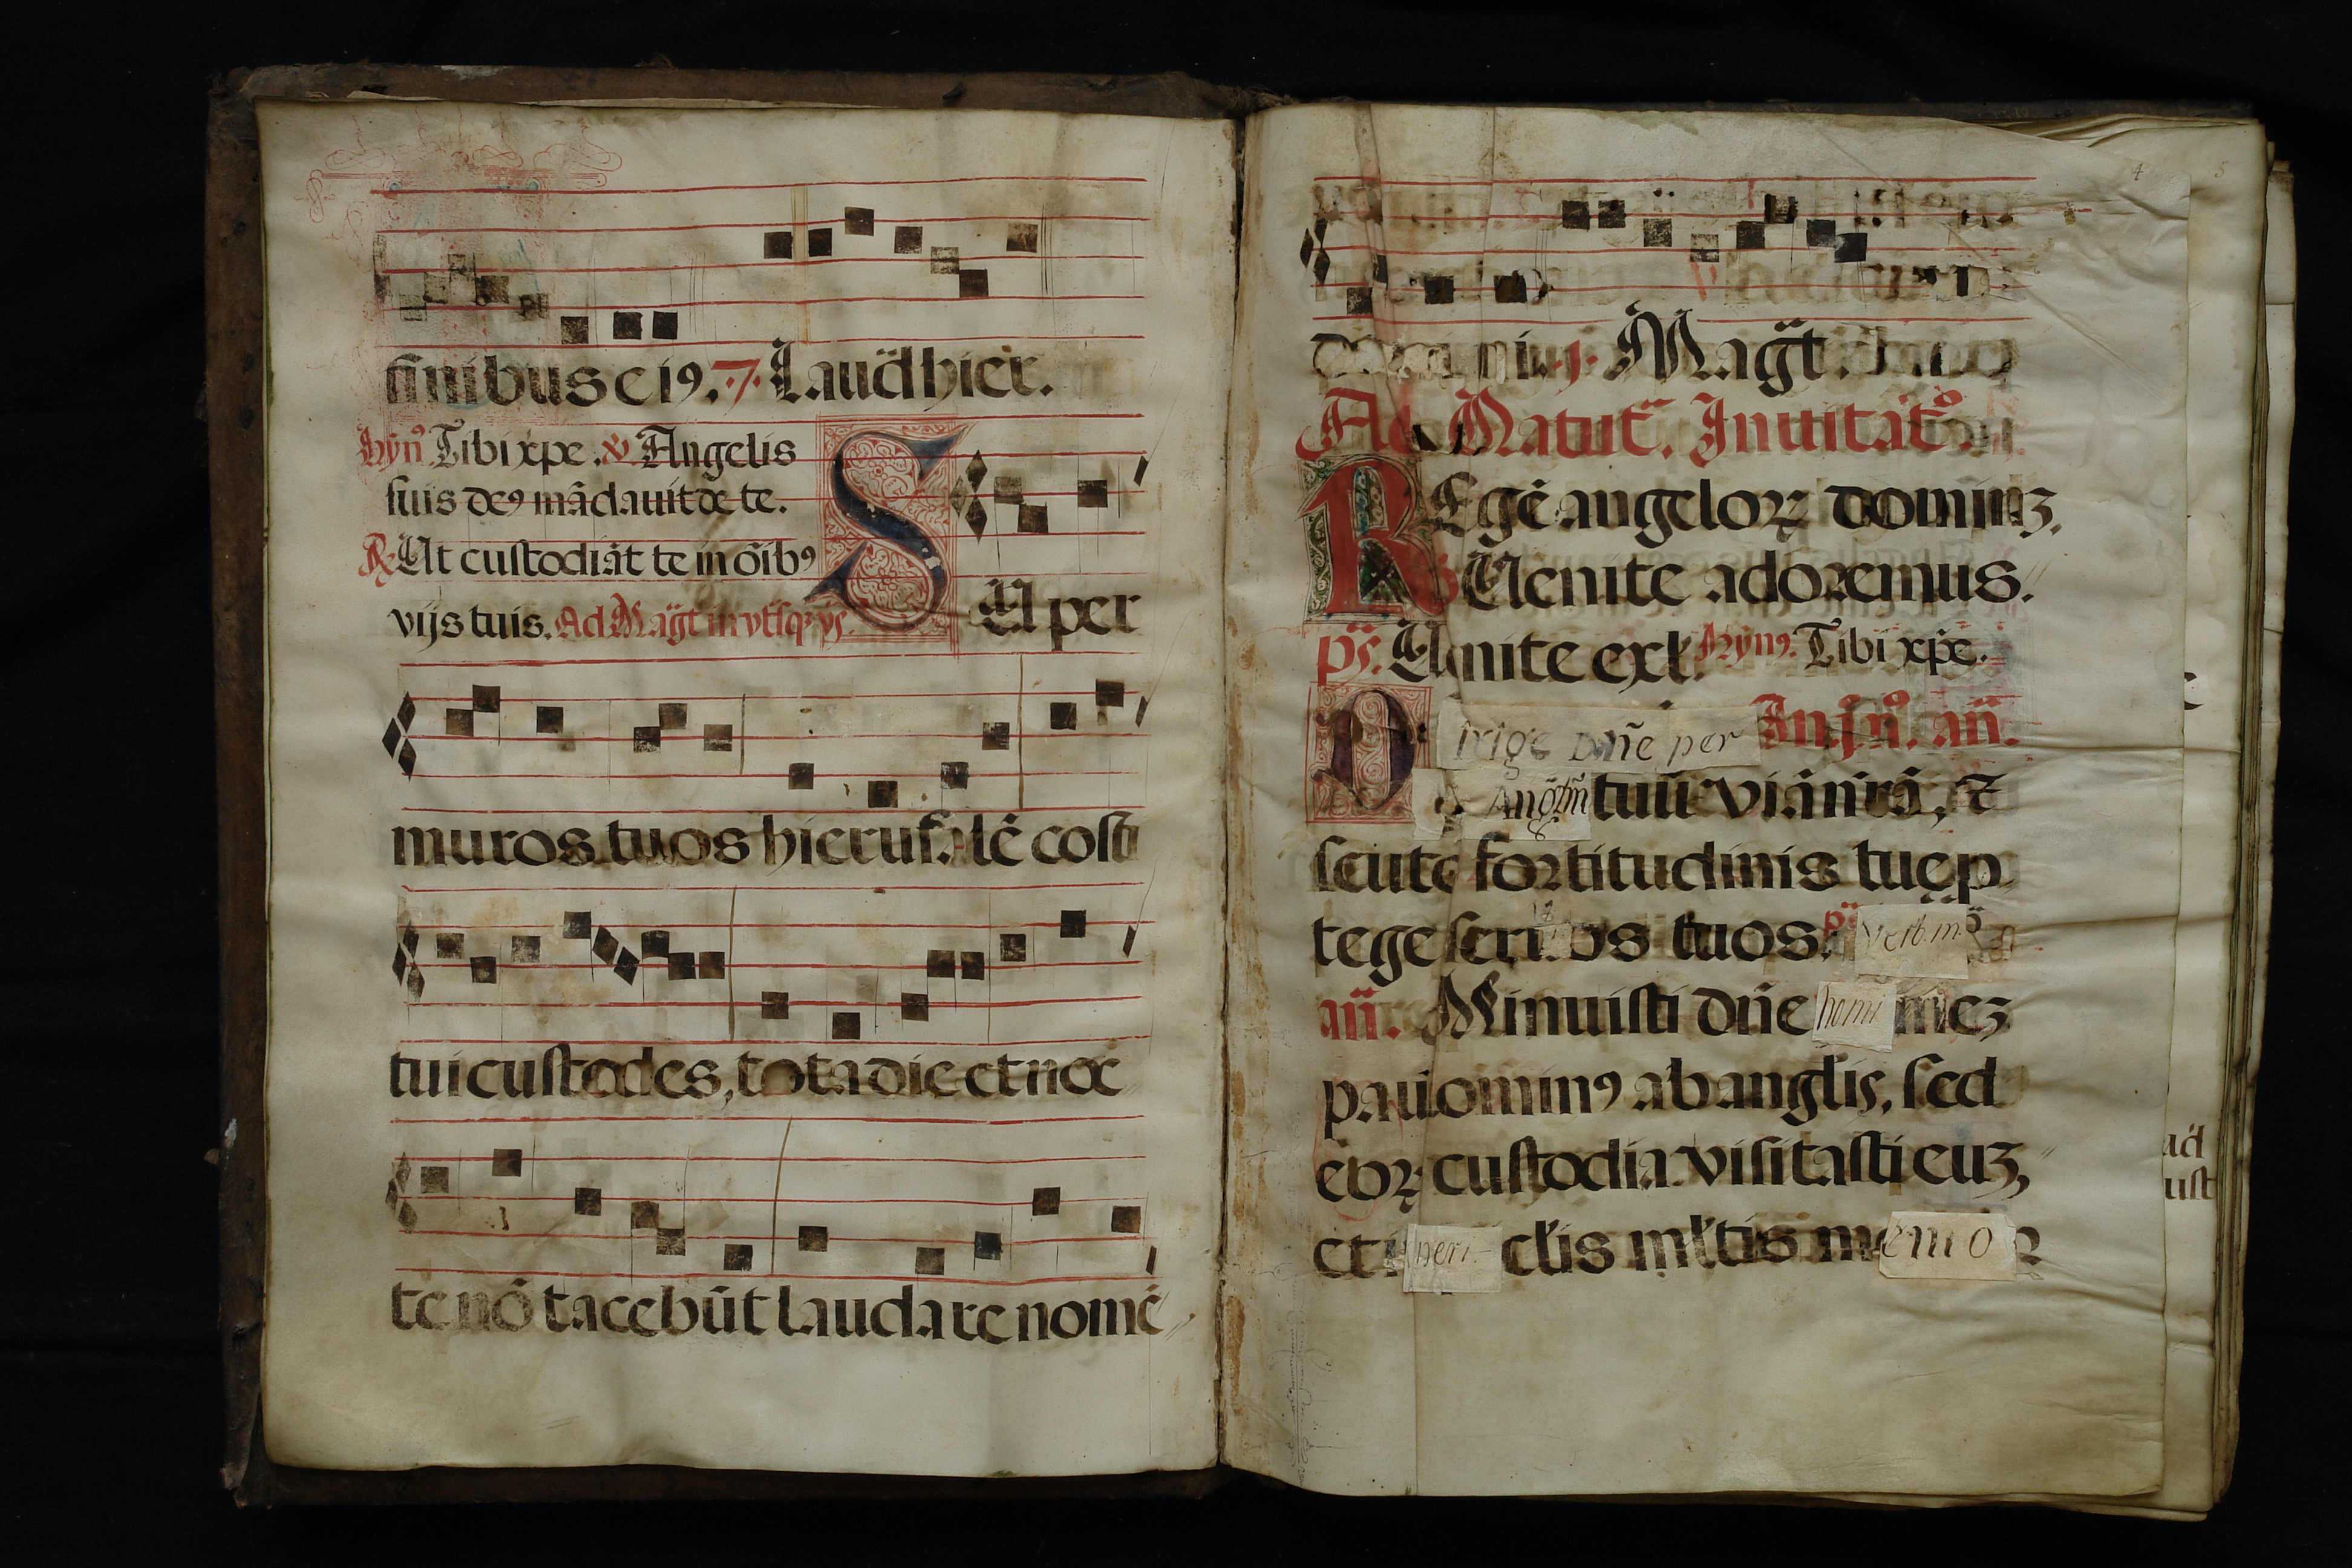 finibus ei9. .7. Laud̄ hier̄.
hyn̄9 Tibi xp̄e. ℣ Angelis
suis de9 mādauit de te.
℟ Ut custodiāt te in ōib9
vijs tuis. Ad Māgt in vtīsq3 vs̄.
SUper
muros tuos hierusalē cōsti
tui custodes, tota die et noc
te nō tacebūt laudare nomē
domini. Māgt.
Ad Matut̄. Inuitāt̄o
REgē angeloꝝ dominū3.
Uenite adoremus.
ps̄. Uenite exl. hyn̄9. Tibi xp̄e.
In .j. n̄o. an̄.
Dirige dn̄e per
Angłm tuū viā nr̄ā, ⁊
scuto fortitudinis tuę p
tege seruos tuos. ps̄ verb. m̄
an̄. Minuisti dn̄e homi ne3
paulomin9 ab anglis, sed
eoꝝ custodia visitasti eu3,
et in peri clis ml̄tis memor
4
5
ad̄
ust